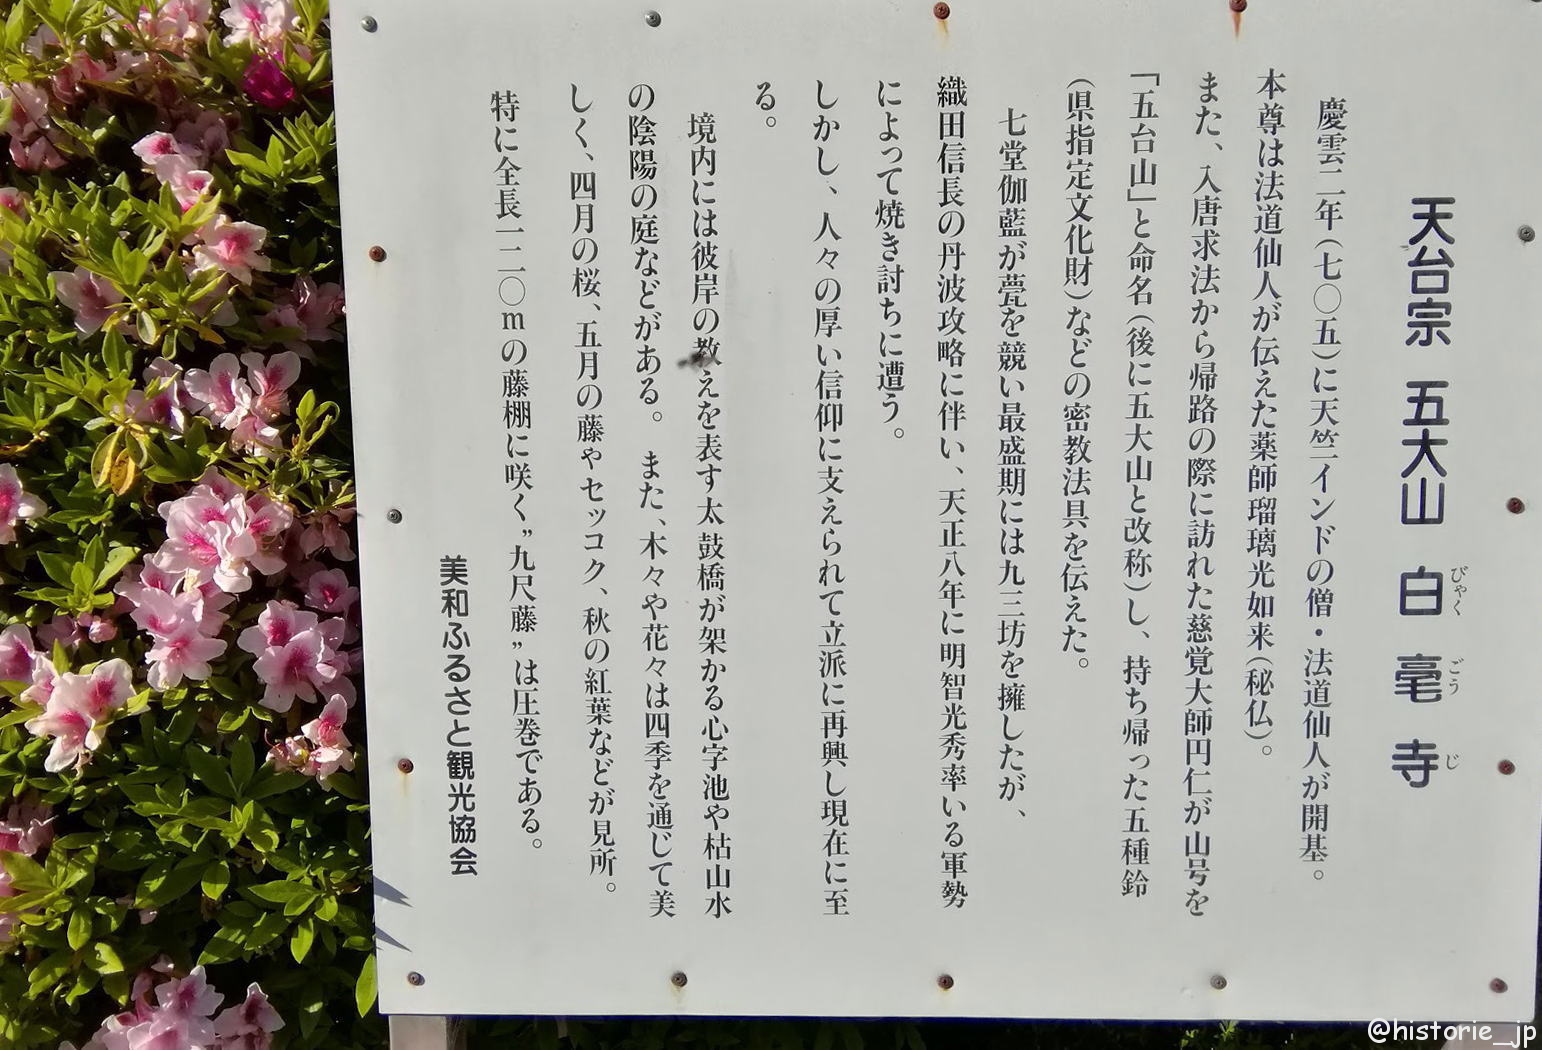 天台宗 五大山 白毫寺
びゃく ごう じ
慶雲二年(七〇五)に天竺インドの僧・法道仙人が開基。
本尊は法道仙人が伝えた薬師瑠璃光如来(秘仏)。
また、入唐求法から帰路の際に訪れた慈覚大師円仁が山号を
「五台山」と命名(後に五大山と改称)し、持ち帰った五種鈴
(県指定文化財)などの密教法具を伝えた。
七堂伽藍が甍を競い最盛期には九三坊を擁したが、
織田信長の丹波攻略に伴い、天正八年に明智光秀率いる軍勢
によって焼き討ちに遭う。
しかし、人々の厚い信仰に支えられて立派に再興し現在に至
る。
境内には彼岸の教えを表す太鼓橋が架かる心字池や枯山水
の陰陽の庭などがある。また、木々や花々は四季を通じて美
しく、四月の桜、五月の藤やセッコク、秋の紅葉などが見所。
特に全長一二〇mの藤棚に咲く〝九尺藤〟は圧巻である。
美和ふるさと観光協会
@historie_jp